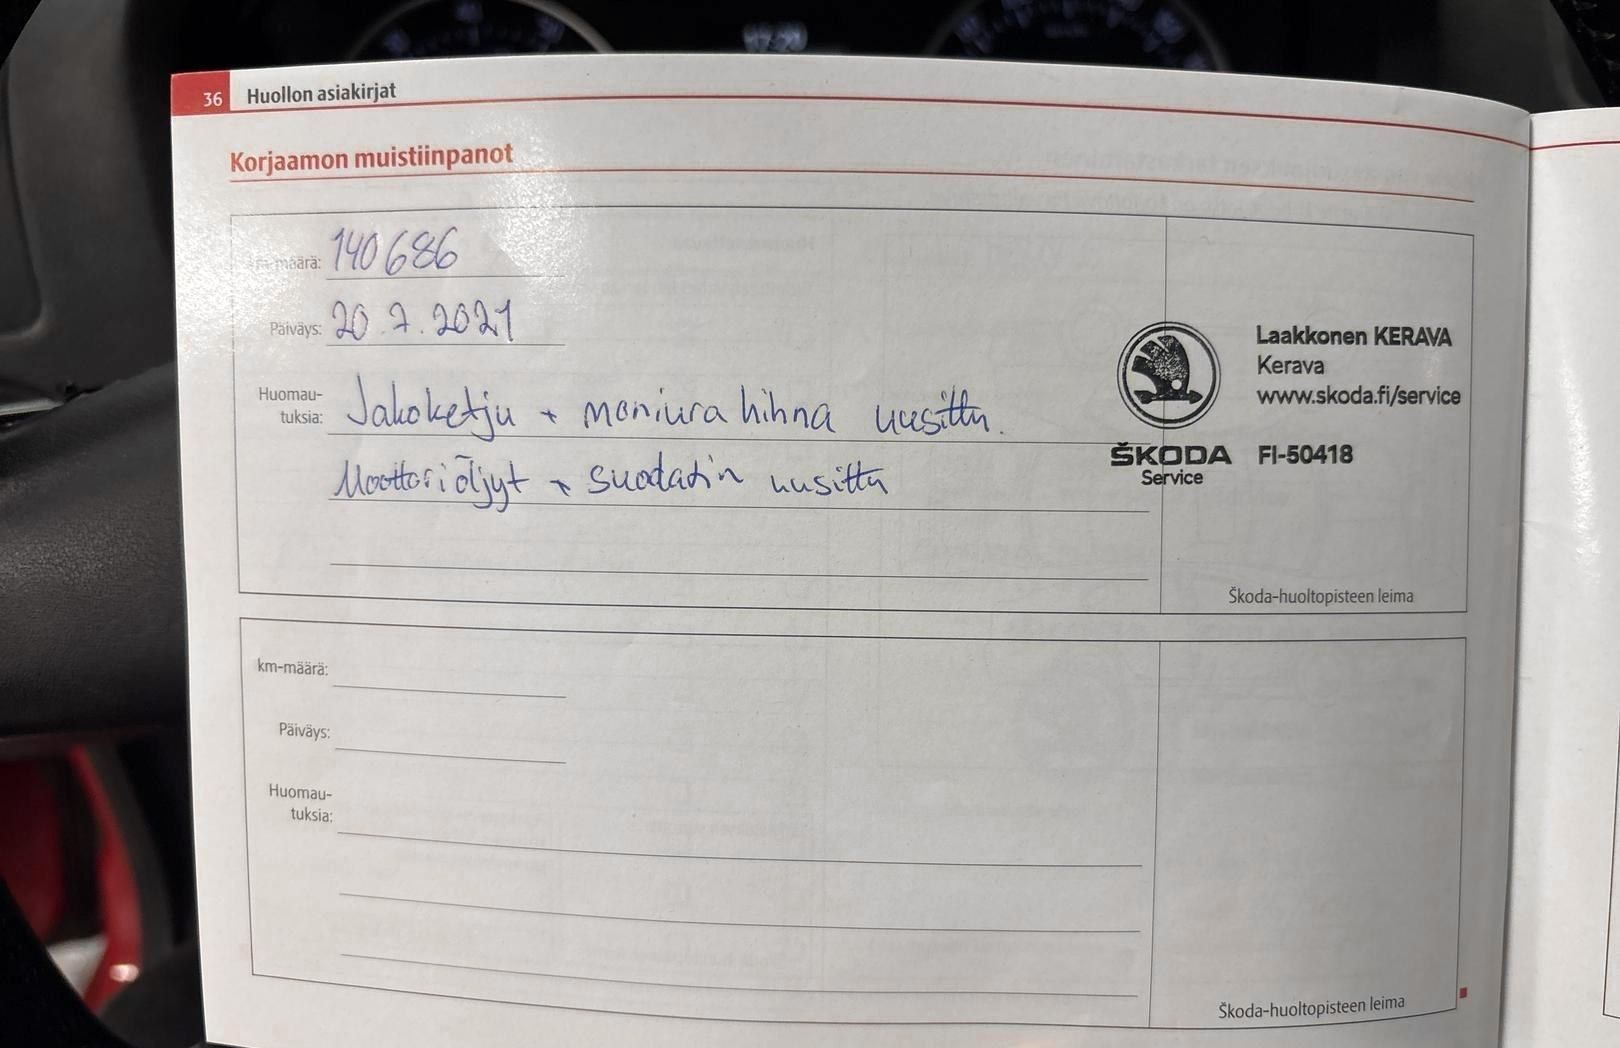 36 Huollon asiakirjat
Korjaamon muistiinpanot
km-määrä: 140686
Päiväys: 20.7.2021
Huomau-
tuksia: Jakoketju + moniura hihna uusittu.
Moottoriöljyt + suodatin uusittu
Laakkonen KERAVA
Kerava
www.skoda.fi/service
ŠKODA FI-50418
Service
Škoda-huoltopisteen leima
km-määrä:
Päiväys:
Huomau-
tuksia:
Škoda-huoltopisteen leima